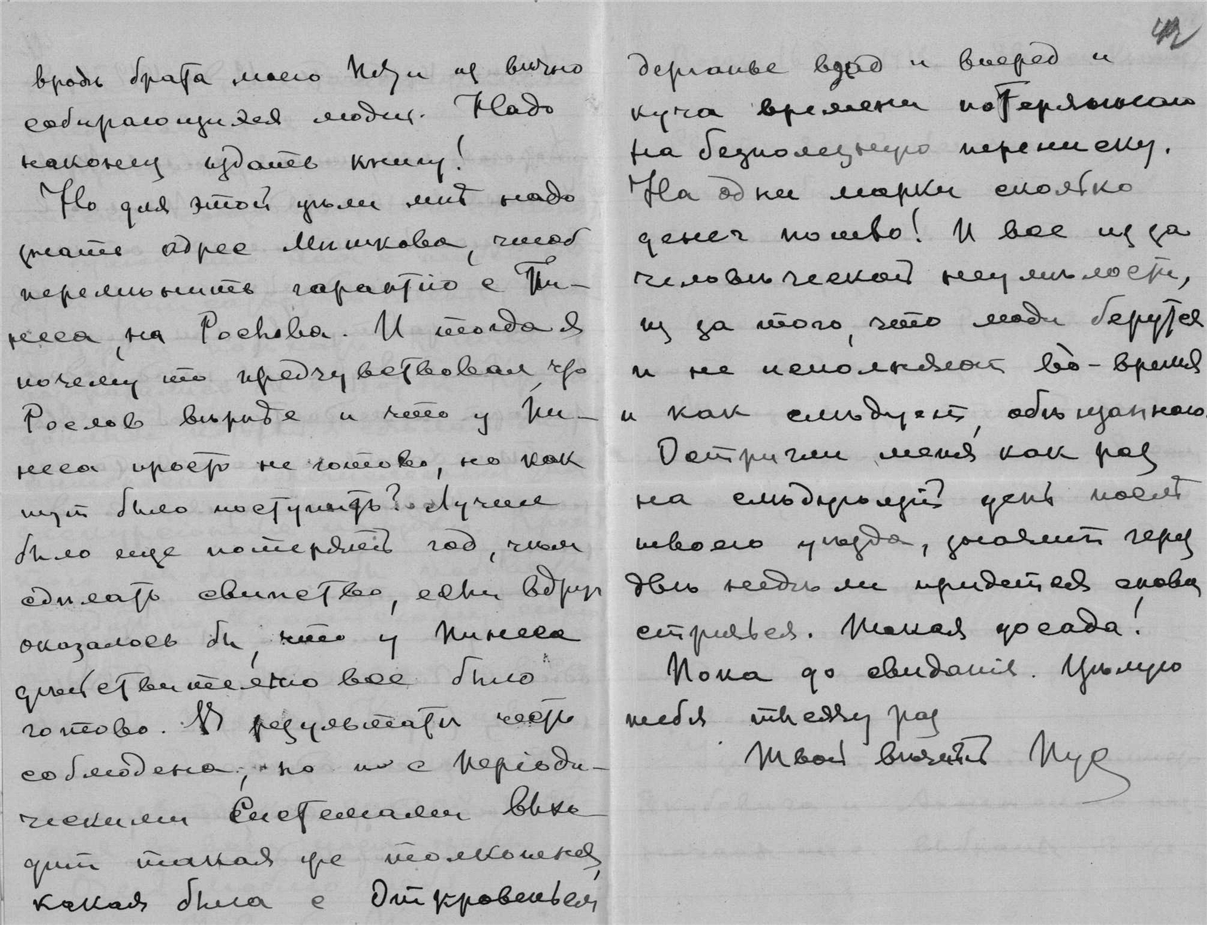 вродѣ брата моего Пети из вѣчно
собирающихся людей. Надо
наконец издать книгу!
Но для этой цѣли мнѣ надо
знать адрес Мишкова, чтоб
перемѣнить гарантію с Пи-
неса, на Рослова. И тогда я
почему то предчувствовал, что
Рослов вырядѣ и что у Пи-
неса просто не готово, но как
тут было поступить? Лучше
было еще потерять год, чѣм
сдѣлать свинство, если вдруг
оказалось бы, что у Пинеса
дѣйствительно все было
готово. В результатѣ честь
соблюдена, но и с Періоди-
ческими Системами выхо-
дит такая же толкотня,
какая была с Откровеньем,
42
дерганье взад и вперед и
куча времени потеряннаго
на безполезную переписку.
На одни марки сколько
денег пошло! И все из за
человѣческой неумѣлости,
из за того, что люди берутся
и не исполняют во-время
и как слѣдует, обѣщаннаго.
Остригли меня как раз
на слѣдующій день послѣ
твоего уѣзда, значит через
двѣ недѣли придется снова
стричься. Такая досада!
Пока до свиданія. Цѣлую
тебя тысячу раз
Твой вѣчный